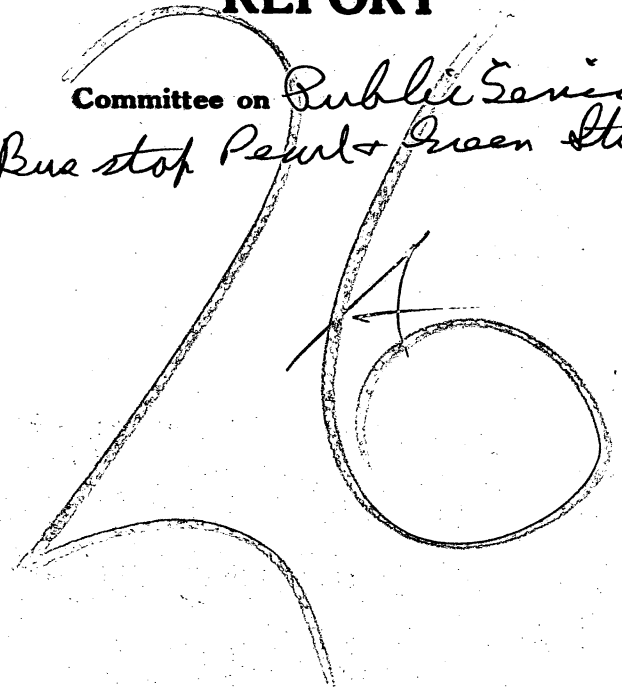 REPORT
Committee on Public Servic
Bus stop Pearl + Green Sts
26
A